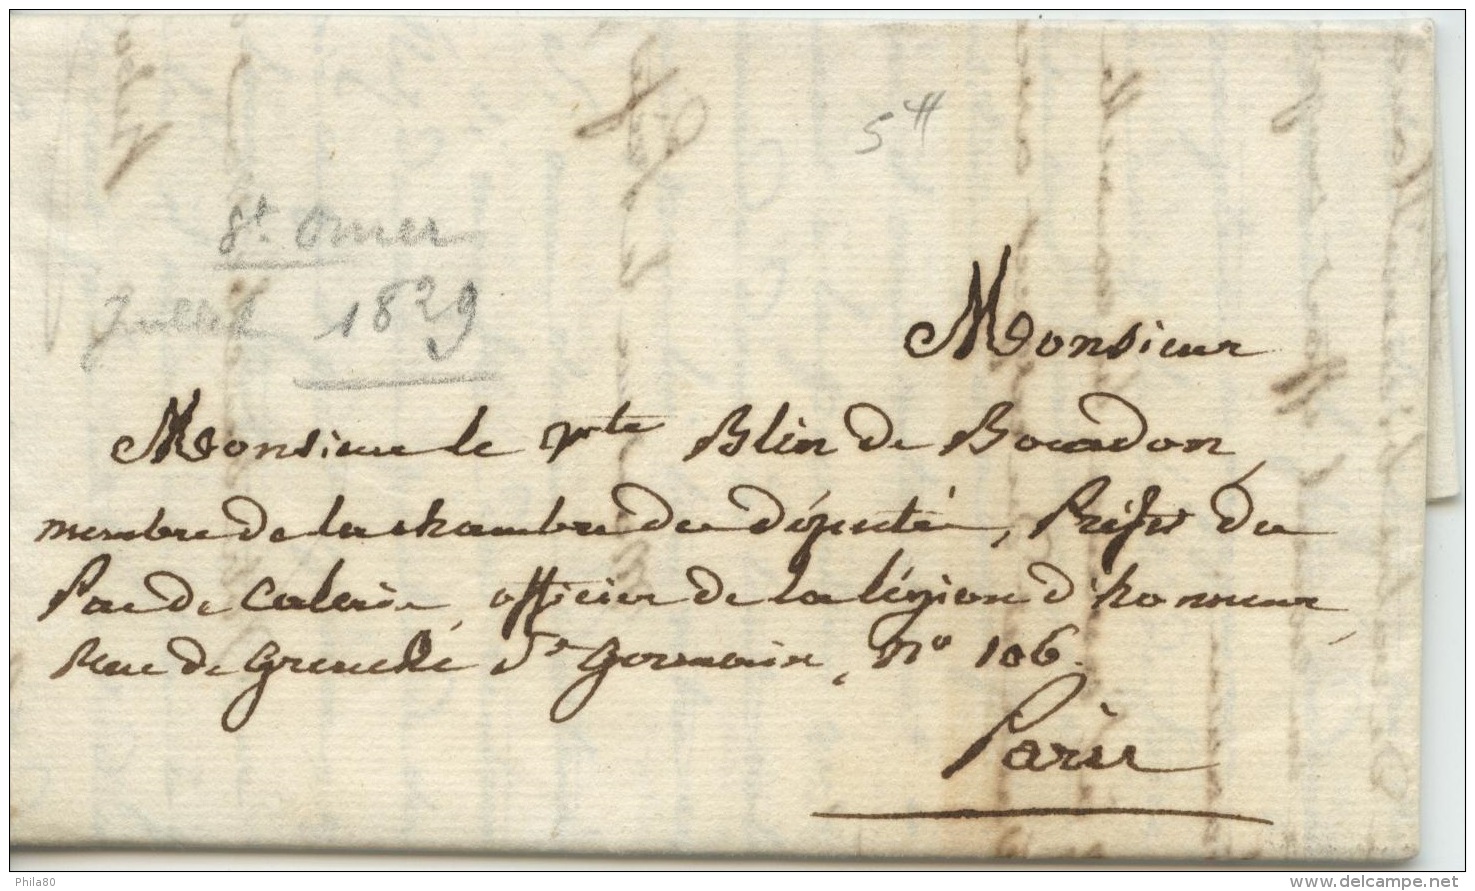 5 ₶
St. Omer
Juillet 1829
Monsieur
Monsieur le Vte Blin de Bourdon,
membre de la chambre des députés, Préfet du
Pas de Calais, officier de la légion d'honneur,
Rue de Grenelle St Germain, n° 106.
Paris
Phila80
delcampe.net